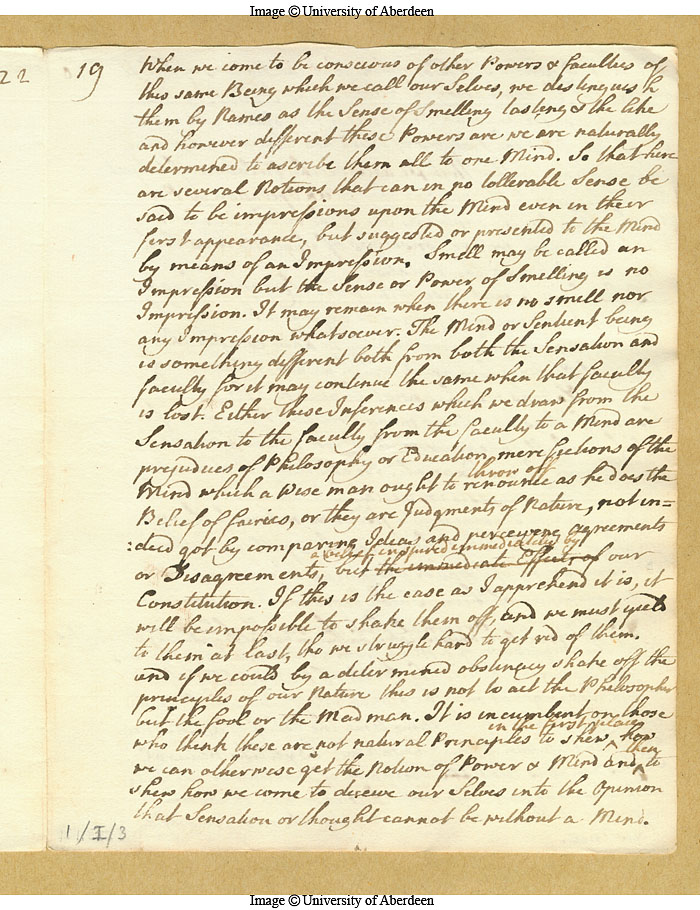 Image © University of Aberdeen
22
19
When we come to be conscious of other Powers & faculties of
this same Being which we call our Selves, we destinguish
them by Names as the Sense of Smelling tasting & the like
and however different these Powers are we are naturally
determined to ascribe them all to one Mind. So that here
are several Notions that can in no tollerable Sense be
said to be impressions upon the Mind even in their
first appearance, but suggested or presented to the Mind
by means of an Impression. Smell may be called an
Impression but the Sense or Power of Smelling is no
Impression. It may remain when there is no smell nor
any Impression whatsoever. The Mind or Sentient being
is something different both from both the Sensation and
faculty for it may continue the same when that faculty
is lost. Either these Inferences which we draw from the
Sensation to the faculty from the faculty to a Mind are
prejudices of Philosophy or Education, mere fictions of the
throw off
Mind which a wise man ought to renounce as he does the
Belief of fairies, or they are Judgments of Nature, not in=
:deed got by comparing Ideas and perceiving agreements
a belief inspired immediately by
or Disagreements, but the immediate Effects of our
Constitution. If this is the case as I apprehend it is, it
will be impossible to shake them off, and we must yield
to them at last, tho we struggle hard to get rid of them.
and if we could by a determined obstinacy shake off the
principles of our Nature this is not to act the Philosopher
but the fool or the Mad man. It is incumbent on those
in the first place
who think these are not natural Principles to shew how
then
we can otherwise get the Notion of Power & Mind and to
shew how we come to deceive our Selves into the Opinion
that Sensation or thought cannot be without a Mind.
1/I/3
Image © University of Aberdeen